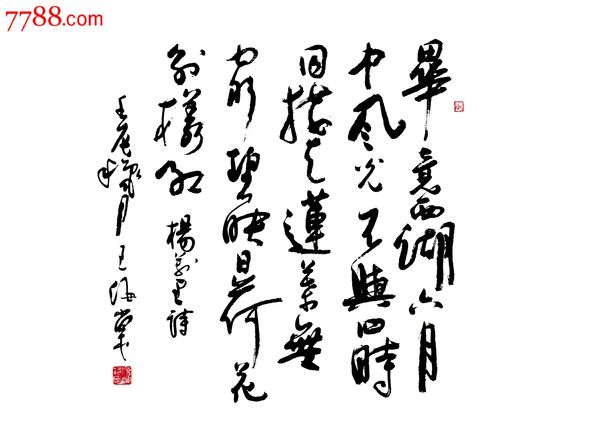 7788.com
畢竟西湖六月
中風光不與四時
同接天蓮葉無
窮碧映日荷花
別樣紅 楊萬里詩
壬辰 月